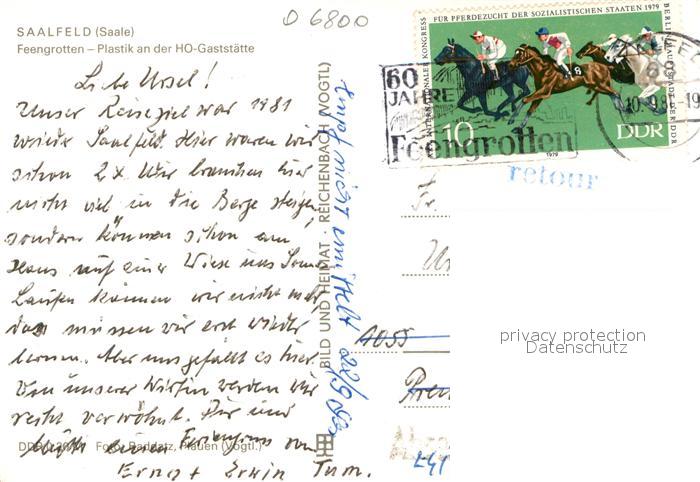 D 6800
SAALFELD (Saale)
Feengrotten – Plastik an der HO-Gaststätte
Liebe Ursel!
Unser Reiseziel war 1981
wieder Saalfeld. Hier waren wir
schon 2x. Wir brauchen hier
nicht viel in die Berge steigen,
sondern können schon am
Haus auf einer Wiese uns
Laufen können wir nicht mehr,
das müssen wir erst wieder
lernen. Aber uns gefällt es hier.
Von unserer Wirtin werden wir
recht verwöhnt. Dir und
einen Feriengruss von
Erna + Erwin
DDR Foto: Raddatz, Plauen (Vogtl.)
BILD UND HEIMAT REICHENBACH (VOGTL)
Empf nicht ermittelt
INTERNATIONALER KONGRESS FÜR PFERDEZUCHT DER SOZIALISTISCHEN STAATEN 1979 BERLIN HAUPTSTADT DER DDR
10
DDR
1979
60
JAHRE
Feengrotten
68
10.-9.81-19
retour
Fr.
1055
privacy protection
Datenschutz